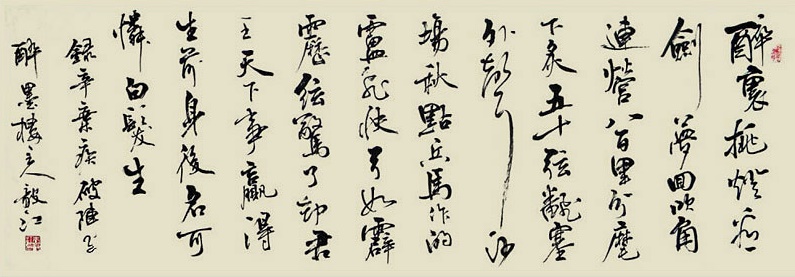 醉裏挑燈看
劍夢回吹角
連營八百里分麾
下炙五十弦翻塞
外聲沙
場秋點兵馬作的
盧飛快弓如霹
靂弦驚了卻君
王天下事贏得
生前身後名可
憐白髮生
錄辛棄疾破陣子
醉墨樓主人毅江